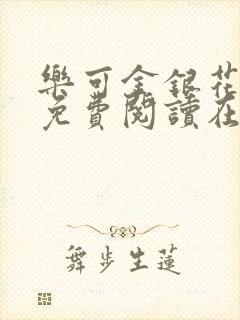 樂可金銀花
免費閱讀在
舞步生蓮